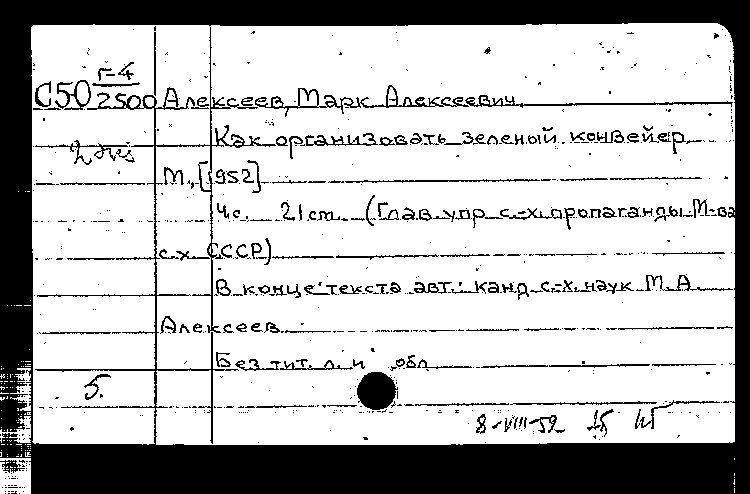 г-4
С50 2500 Алексеев, Марк Алексеевич.
Как организовать зеленый конвейер
2
М., [1952]
4с. 21 cm. (Глав. упр с.-х. пропаганды М-ва
с.х. СССР)
В конце текста авт.: канд с.-х. наук М. А.
Алексеев
Без тит. л. и обл
5.
8-VIII-52